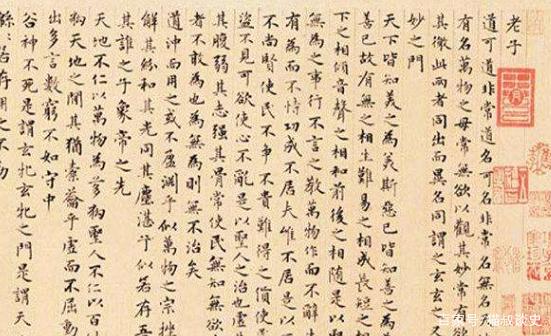 老子
道可道非常道名可名非常名無名
有名萬物之母常無欲以觀其妙常有
其徼此兩者同出而異名同謂之玄玄
妙之門
天下皆知美之為美斯惡已皆知善之為
善已故有無之相生難易之相成長短之相
下之相傾音聲之相和前後之相隨是以
無為之事行不言之教萬物作而不辭
有為而不恃功成不居夫唯不居是以
不尚賢使民不爭不貴難得之貨使民
盜不見可欲使心不亂是以聖人之治也虛
其腹弱其志強其骨常使民無知無欲
者不敢為也為無為則無不治矣
道沖而用之或不盈淵乎似萬物之宗挫
解其紛和其光同其塵湛兮似若存吾
其誰之子象帝之先
天地不仁以萬物為芻狗聖人不仁以百
狗天地之間其猶橐籥乎虛而不屈動
出多言數窮不如守中
谷神不死是謂玄牝玄牝之門是謂天
若存用之不勤
百家号/猫叔谈史